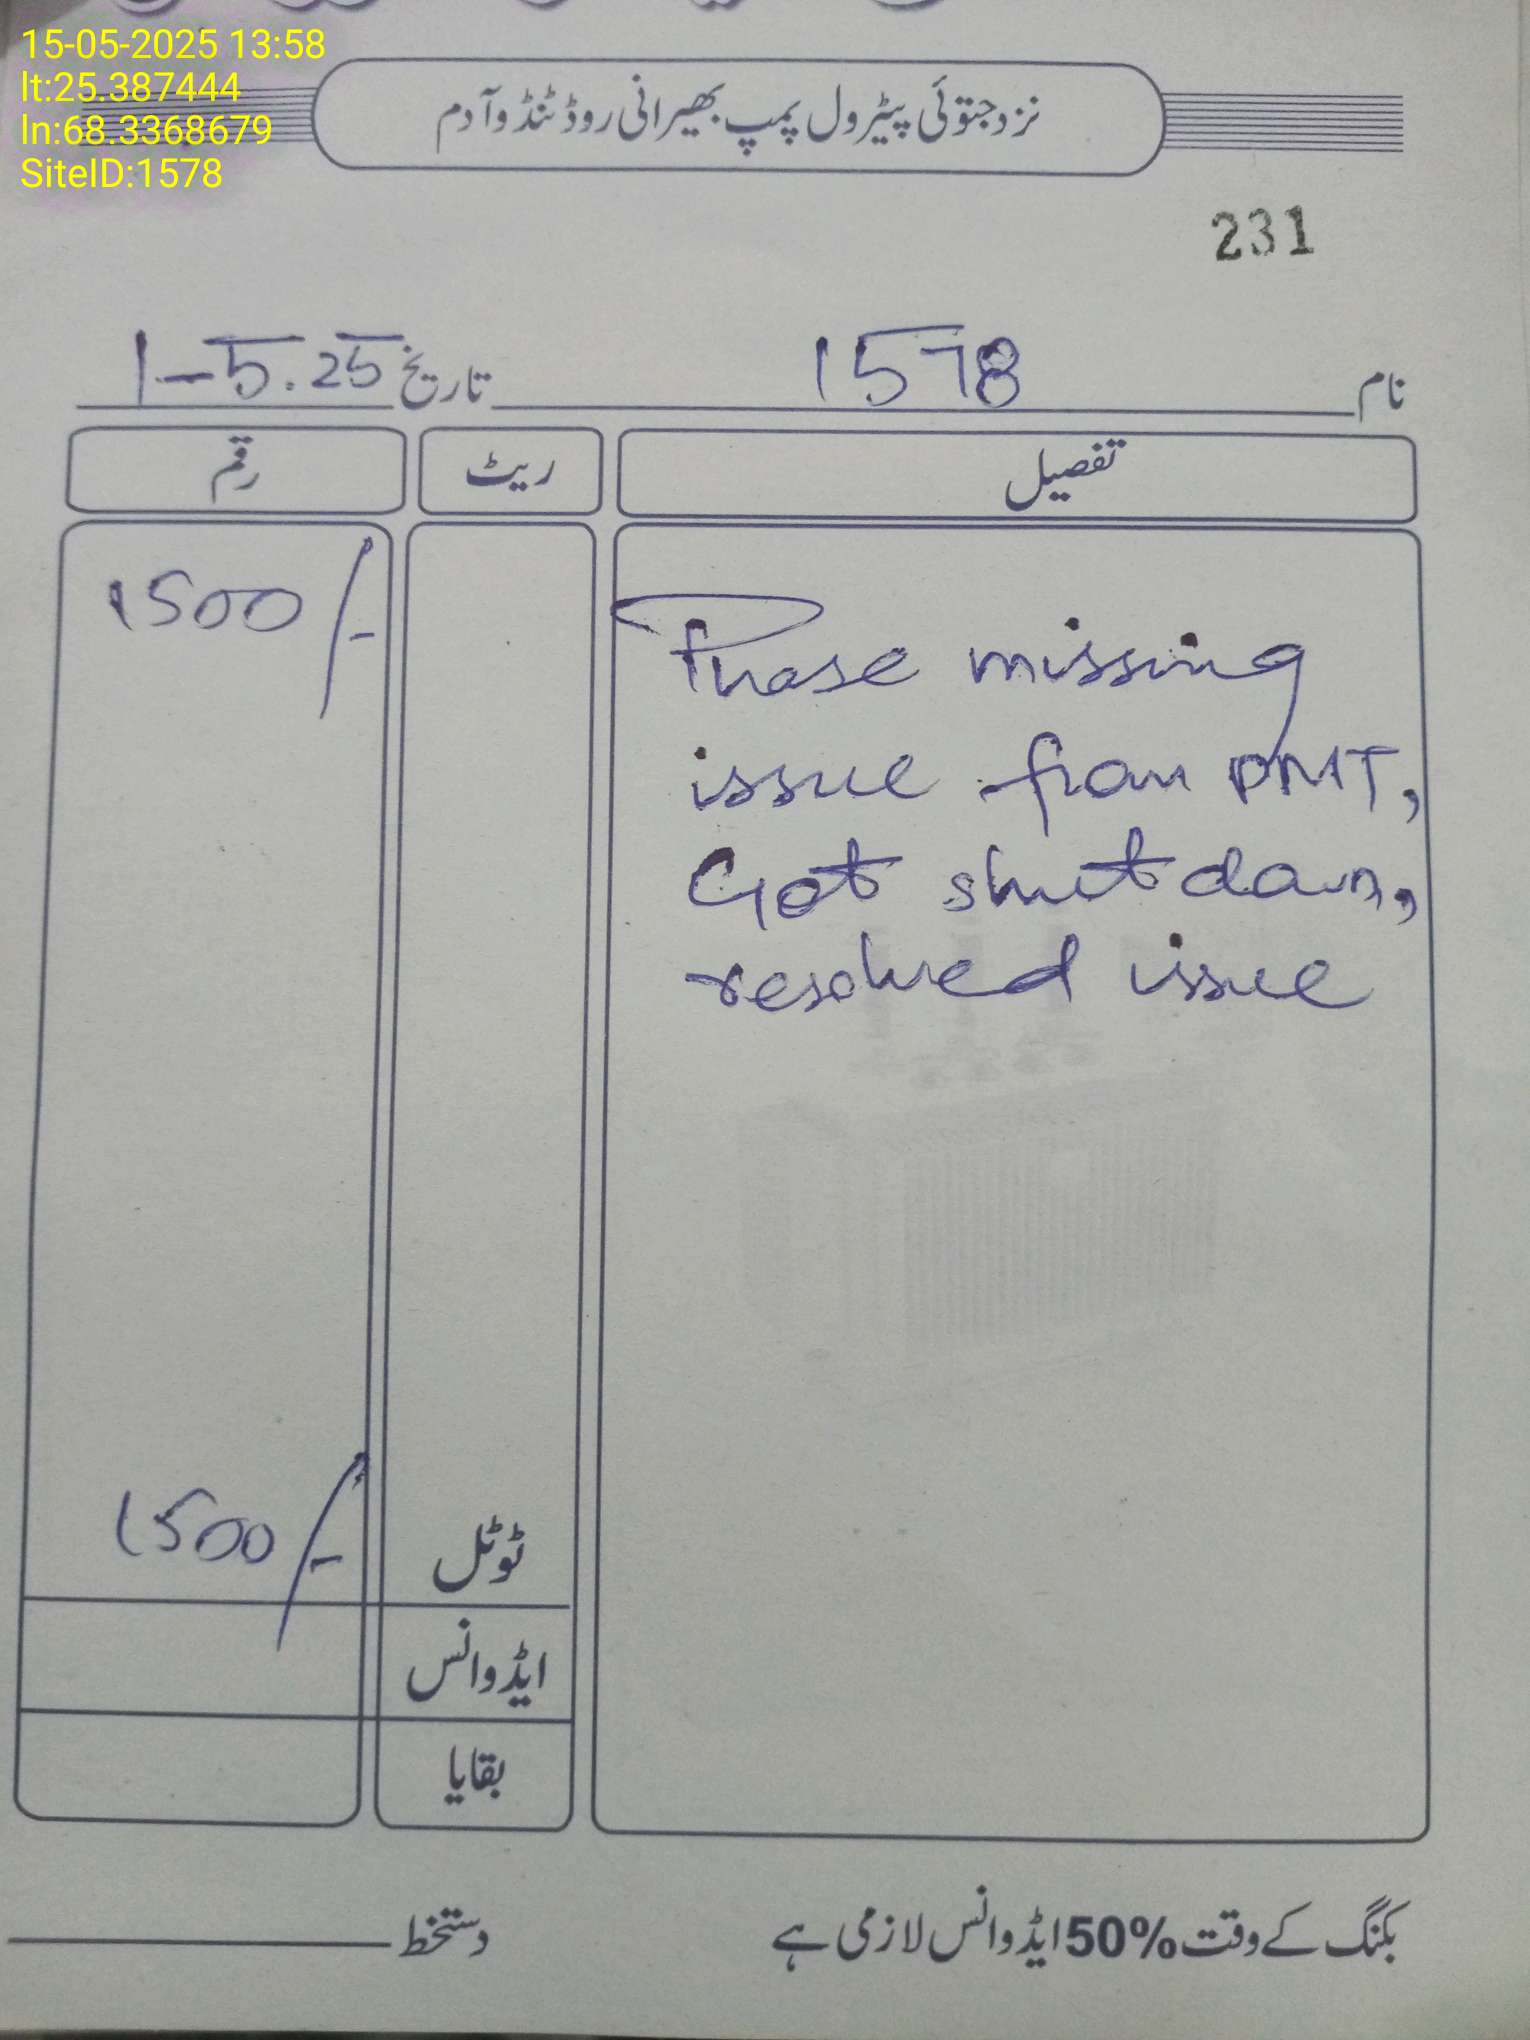 15-05-2025 13:58
lt:25.387444
ln:68.3368679
SiteID:1578
نزد جتوئی پیٹرول پمپ بھیرانی روڈ ٹنڈوآدم
231
نام 1578 تاریخ 1-5.25
تفصیل ریٹ رقم
Phase missing 1500/-
issue from PMT,
Got shutdown,
resolved issue
ٹوٹل 1500/-
ایڈوانس
بقایا
بکنگ کے وقت 50% ایڈوانس لازمی ہے دستخط